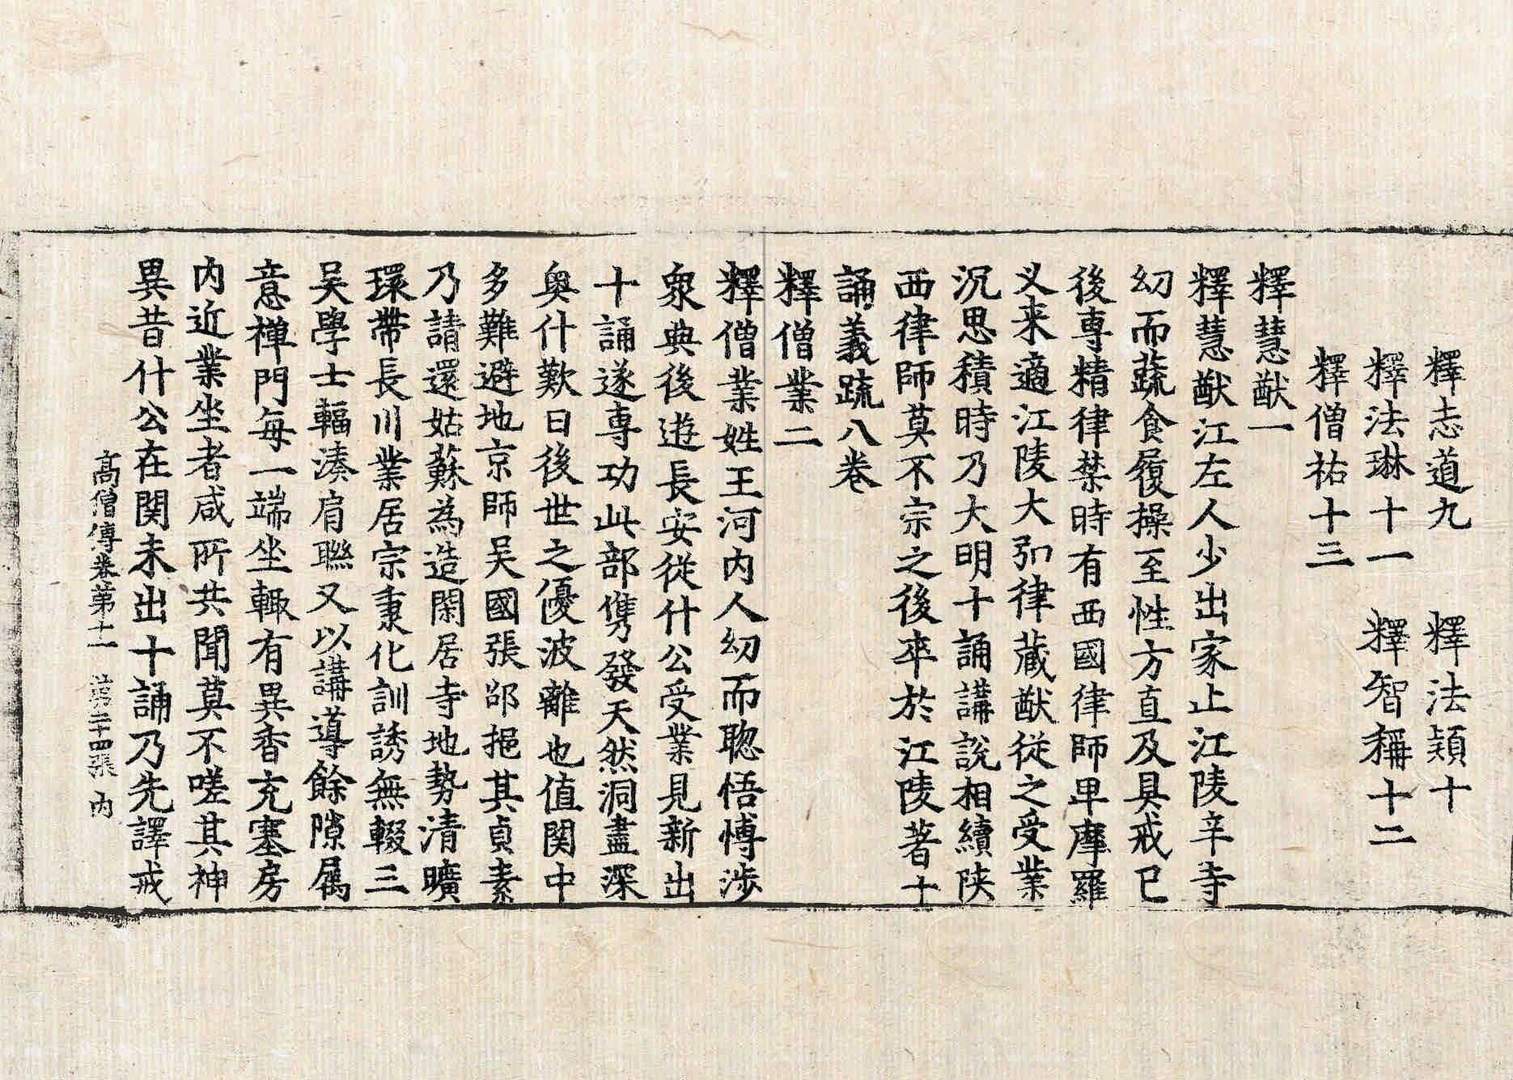 釋志道九　釋法穎十
釋法琳十一　釋智稱十二
釋僧祐十三
釋慧猷一
釋慧猷江左人少出家止江陵辛寺
幼而蔬食履操至性方直及具戒已
後専精律禁時有西國律師卑摩羅
义来適江陵大弘律藏猷従之受業
沉思積時乃大明十誦講説相續陝
西律師莫不宗之後卒於江陵著十
誦義䟽八卷
釋僧業二
釋僧業姓王河内人幼而聡悟愽涉
衆典後遊長安従什公受業見新出
十誦遂専功此部儁發天然洞盡深
奥什歎曰後世之優波離也值関中
多難避地京師吴國張邵挹其貞素
乃請還姑蘇為造閑居寺地勢清曠
環帶長川業居宗秉化訓誘無輟三
吴學士輻湊肩聯又以講導餘隙属
意禅門每一端坐輙有異香充塞房
内近業坐者咸所共聞莫不嗟其神
異昔什公在関未出十誦乃先譯戒
高僧傳卷第十一　第二十四張　内